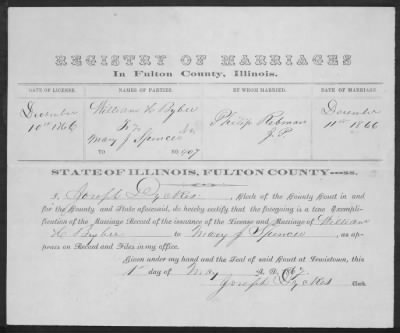 REGISTRY OF MARRIAGES
In Fulton County, Illinois.
DATE OF LICENSE. NAMES OF PARTIES. BY WHOM MARRIED. DATE OF MARRIAGE.
December William H Bybee December
10th 1866 to Philip Rebman 11th 1866
Mary J Spencer J.P.
TO NO 007
STATE OF ILLINOIS, FULTON COUNTY—ss.
I, Joseph Dyckes, Clerk of the County Court in and
for the County and State aforesaid, do hereby certify that the foregoing is a true Exempli-
fication of the Marriage Record of the issuance of the License and Marriage of William
H Bybee to Mary J Spencer, as ap-
pears on Record and Files in my office.
Given under my hand and the Seal of said Court at Lewistown, this
1st day of May A. D. 1867
Joseph Dyckes Clerk.